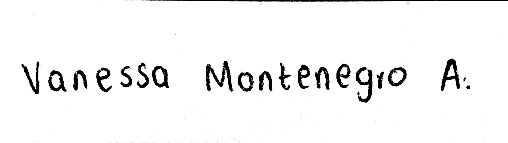 Vanessa Montenegro A.